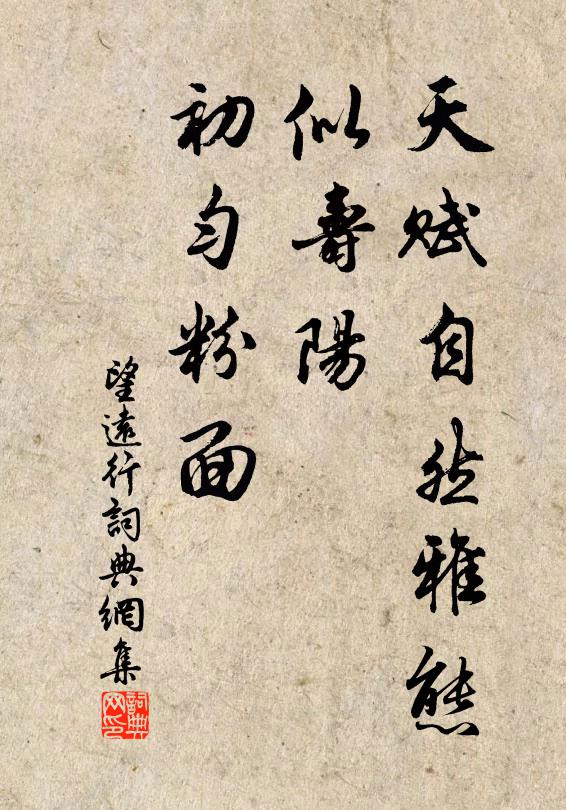 天賦自然雅態
似壽陽
初勻粉面
望遠行詞典網集
詞典
网印